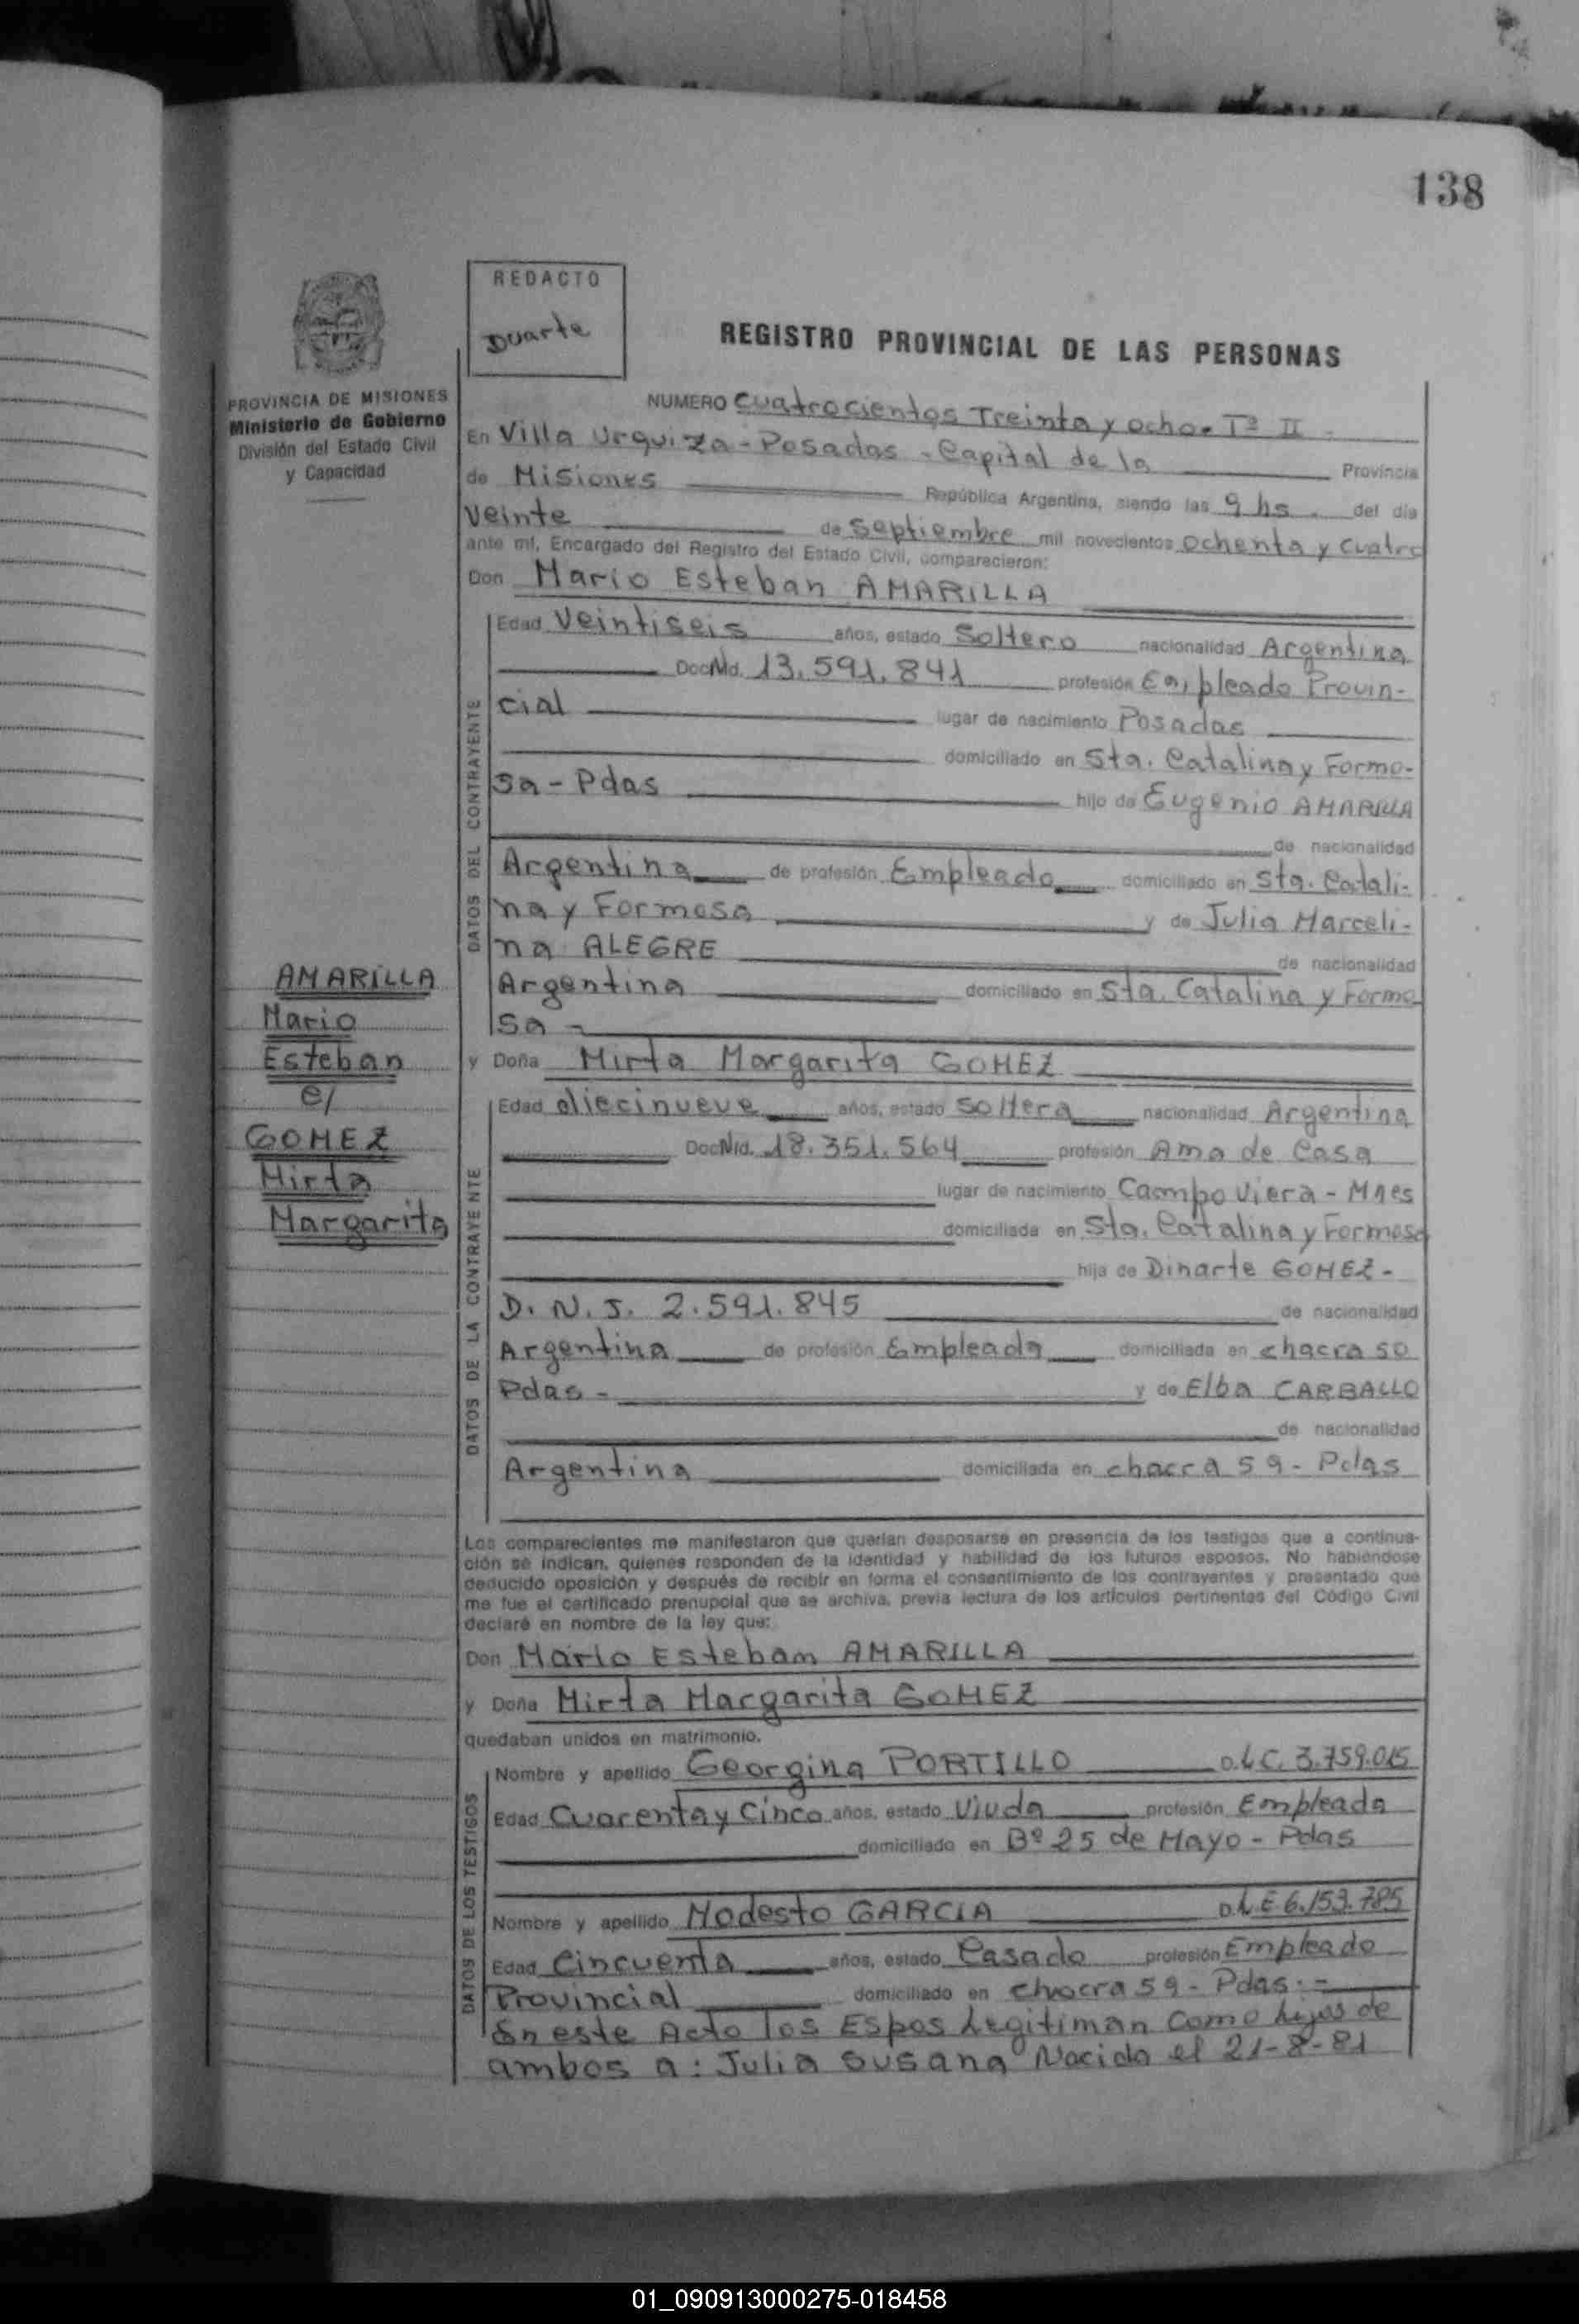 138
REDACTO
Duarte
REGISTRO PROVINCIAL DE LAS PERSONAS
PROVINCIA DE MISIONES
Ministerio de Gobierno
División del Estado Civil
y Capacidad
NUMERO Cuatrocientos Treinta y ocho - Tº II -
En Villa Urquiza - Posadas - Capital de la Provincia
de Misiones República Argentina, siendo las 9 hs. del día
Veinte de Septiembre mil novecientos ochenta y cuatro
ante mí, Encargado del Registro del Estado Civil, comparecieron:
Don Mario Esteban AMARILLA
DATOS DEL CONTRAYENTE
Edad Veintiseis años, estado Soltero nacionalidad Argentina
Doc.Nid. 13.591.841 profesión Empleado Provin-
cial lugar de nacimiento Posadas
domiciliado en Sta. Catalina y Formo-
sa - Pdas hijo de Eugenio AMARILLA
de nacionalidad
Argentina de profesión Empleado domiciliado en Sta. Catali-
na y Formosa y de Julia Marceli-
na ALEGRE de nacionalidad
Argentina domiciliado en Sta. Catalina y Formo
sa -
AMARILLA
Mario
Esteban
c/
GOMEZ
Mirta
Margarita
y Doña Mirta Margarita GOMEZ
DATOS DE LA CONTRAYENTE
Edad diecinueve años, estado Soltera nacionalidad Argentina
Doc.Nid. 18.351.564 profesión Ama de Casa
lugar de nacimiento Campo Viera - Mnes
domiciliada en Sta. Catalina y Formosa
hija de Dinarte GOMEZ -
D. N. I. 2.591.845 de nacionalidad
Argentina de profesión Empleada domiciliada en chacra 50
Pdas - y de Elba CARBALLO
de nacionalidad
Argentina domiciliada en chacra 59 - Pdas
Los comparecientes me manifestaron que querían desposarse en presencia de los testigos que a continua-
ción se indican, quienes responden de la identidad y habilidad de los futuros esposos. No habiéndose
deducido oposición y después de recibir en forma el consentimiento de los contrayentes y presentado que
me fue el certificado prenupcial que se archiva, previa lectura de los artículos pertinentes del Código Civil
declaré en nombre de la ley que:
Don Mario Esteban AMARILLA
y Doña Mirta Margarita GOMEZ
quedaban unidos en matrimonio.
DATOS DE LOS TESTIGOS
Nombre y apellido Georgina PORTILLO D.L.C. 3.759.015
Edad Cuarenta y Cinco años, estado Viuda profesión Empleada
domiciliado en Bº 25 de Mayo - Pdas
Nombre y apellido Modesto GARCIA D.L.E 6.153.785
Edad Cincuenta años, estado Casado profesión Empleado
Provincial domiciliado en chacra 59 - Pdas.-
En este Acto los Espos Legitiman como hijos de
ambos a: Julia Susana Nacida el 21-8-81
01_090913000275-018458